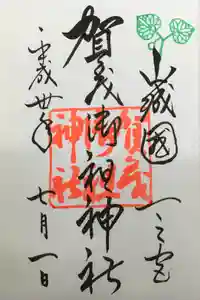 山城國一之宮
賀茂御祖神社
平成卅年七月一日
賀茂
御祖
神社